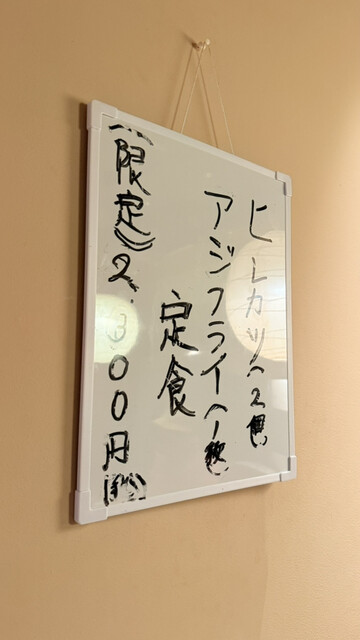 ヒレカツ(2個)
アジフライ(1枚)
定食
(限定)2.300円(税込)